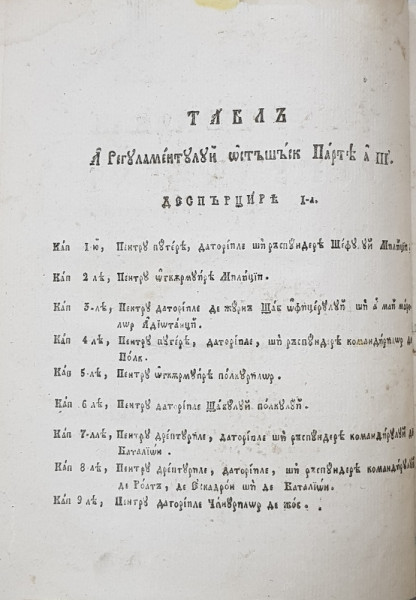 ТАБЛЪ
А҆ Регꙋламе́нтꙋлꙋй ѡ҆стъшъ́ск Па́рт҄Ѣ а҆ III.
ДЕСПЪРЦИРѢ I-а.
Кап 1-ю, Пентрꙋ пꙋте́ре, даторі́иле ши ръспꙋ́ндере Ше́фꙋлꙋй Мили́ції.
Кап 2 лѣ, Пентрꙋ ѡ҆кърмꙋи́ре Мили́ції.
Кап 3-лѣ, Пентрꙋ даторі́иле де жꙋрна Щаб ѡ҆фице́рꙋлꙋй ши а май
лѡр Адіѡта́нцй.
Кап 4 лѣ, Пентрꙋ пꙋте́ре, даторі́иле, ши ръспꙋ́ндере команди́рилѡр де
Полк.
Кап 5-лѣ, Пентрꙋ ѡ҆кърмꙋи́ре полкꙋрилѡр.
Кап 6 лѣ, Пентрꙋ даторі́иле Ща́бꙋлꙋй по́лкꙋлꙋй.
Кап 7-лѣ, Пентрꙋ дре́птꙋриле, даторі́иле ши ръспꙋ́ндере команди́рꙋлꙋй де
Баталиѡ́н.
Кап 8 лѣ, Пентрꙋ дре́птꙋриле, даторі́иле, ши ръспꙋ́ндере команди́рꙋлꙋй
де Ро́тъ, де Ескадрѡ́н ши де Баталиѡ́н.
Кап 9 лѣ, Пентрꙋ даторі́иле Чи́нꙋрилѡр де жо́с.